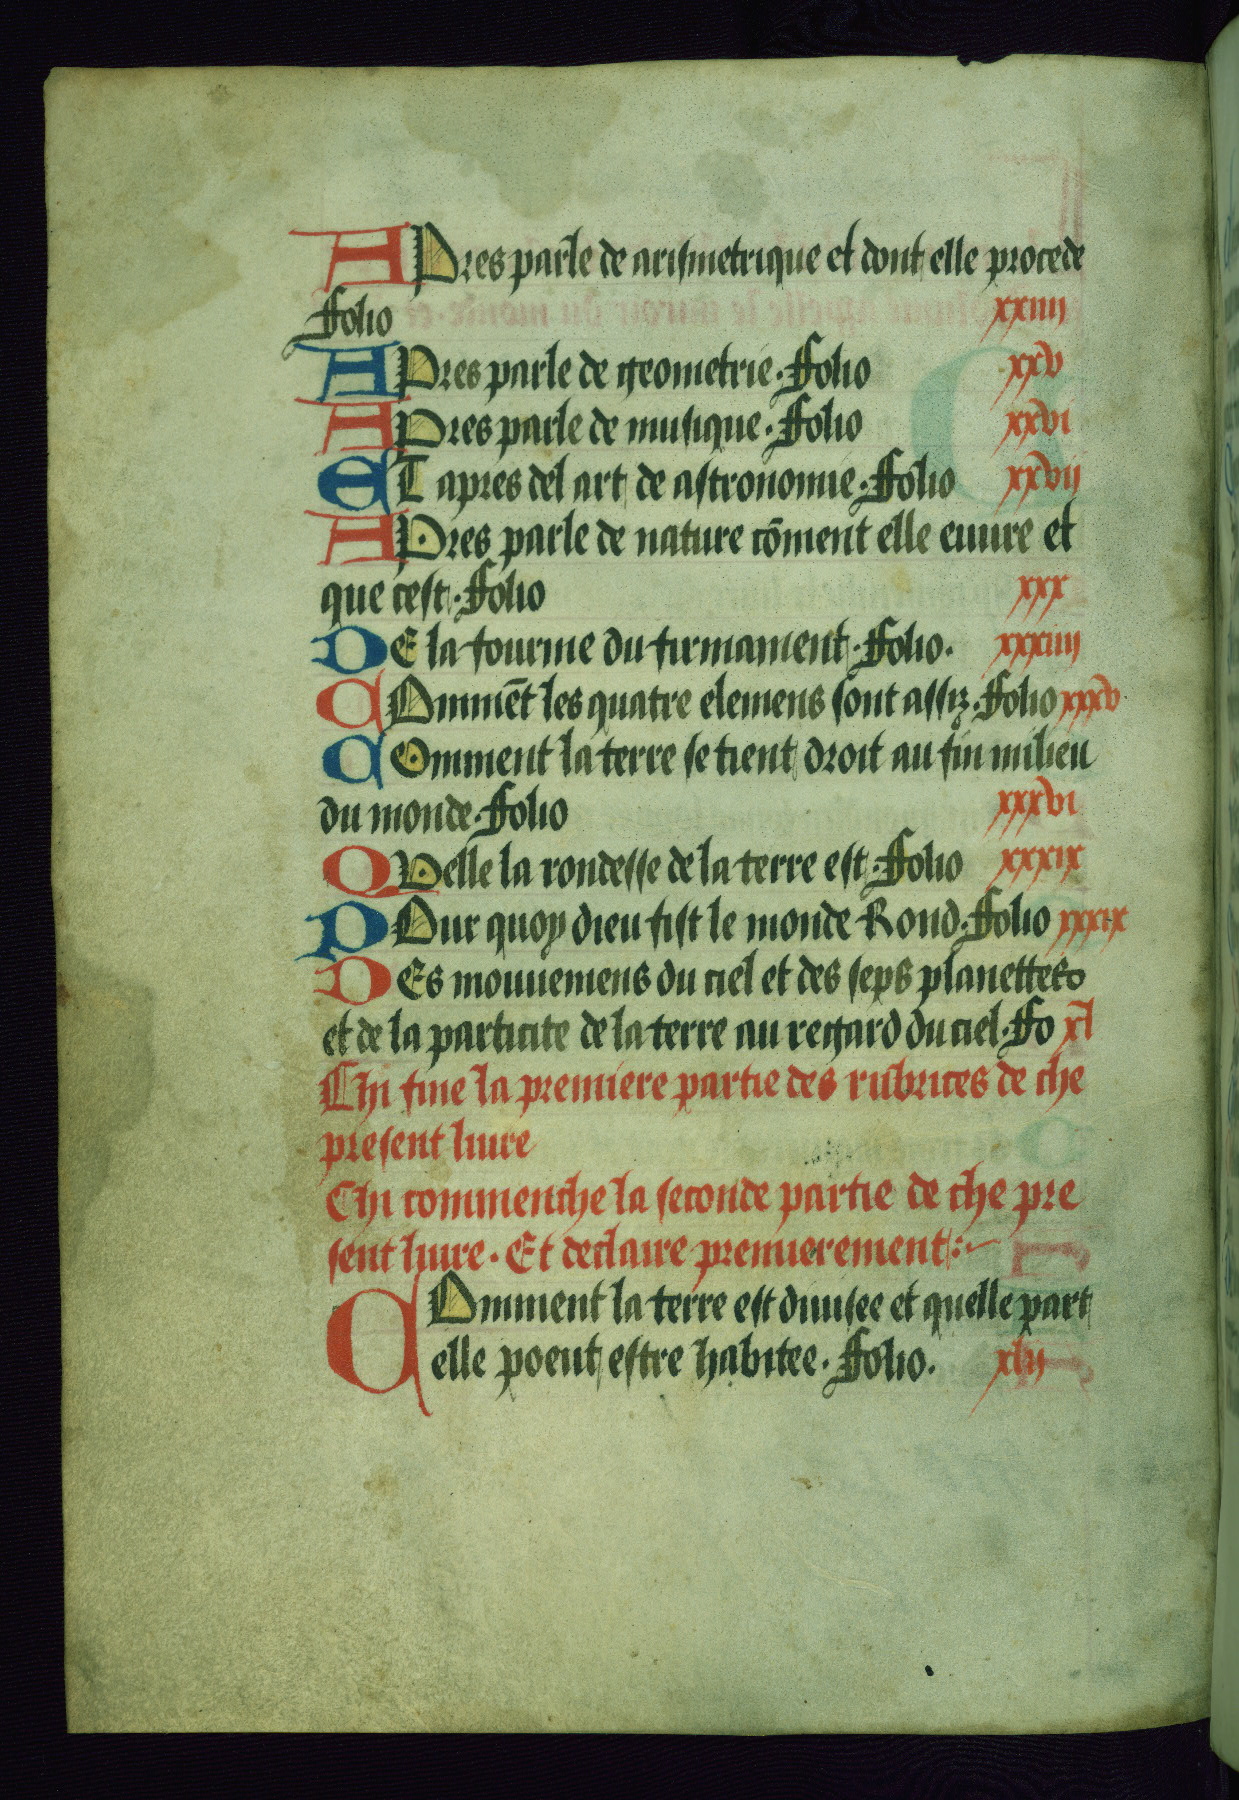 APres parle de arismetrique et dont elle procede
Folio xxiiij
APres parle de geometrie. Folio xxv
APres parle de musique. Folio xxvi
ET apres del art de astronomie. Folio xxvij
APres parle de nature cōment elle euure et
que cest. Folio xxx
DE la fourme du firmament. Folio. xxxiiij
COmmēt les quatre elemens sont assiz. Folio xxxv
Comment la terre se tient droit au fin milieu
du monde. Folio xxxvi
QVelle la rondesse de la terre est. Folio xxxix
POur quoy dieu fist le monde Rond. Folio xxxix
DEs mouuemens du ciel et des seps planettes
et de la particite de la terre au regard du ciel. Fo xl
Chi fine la premiere partie des rubrices de che
present liure
Chi commenche la seconde partie de che pre
sent liure. Et declaire premierement
COmment la terre est diuisee et quelle part
elle poeut estre habitee. Folio. xlij